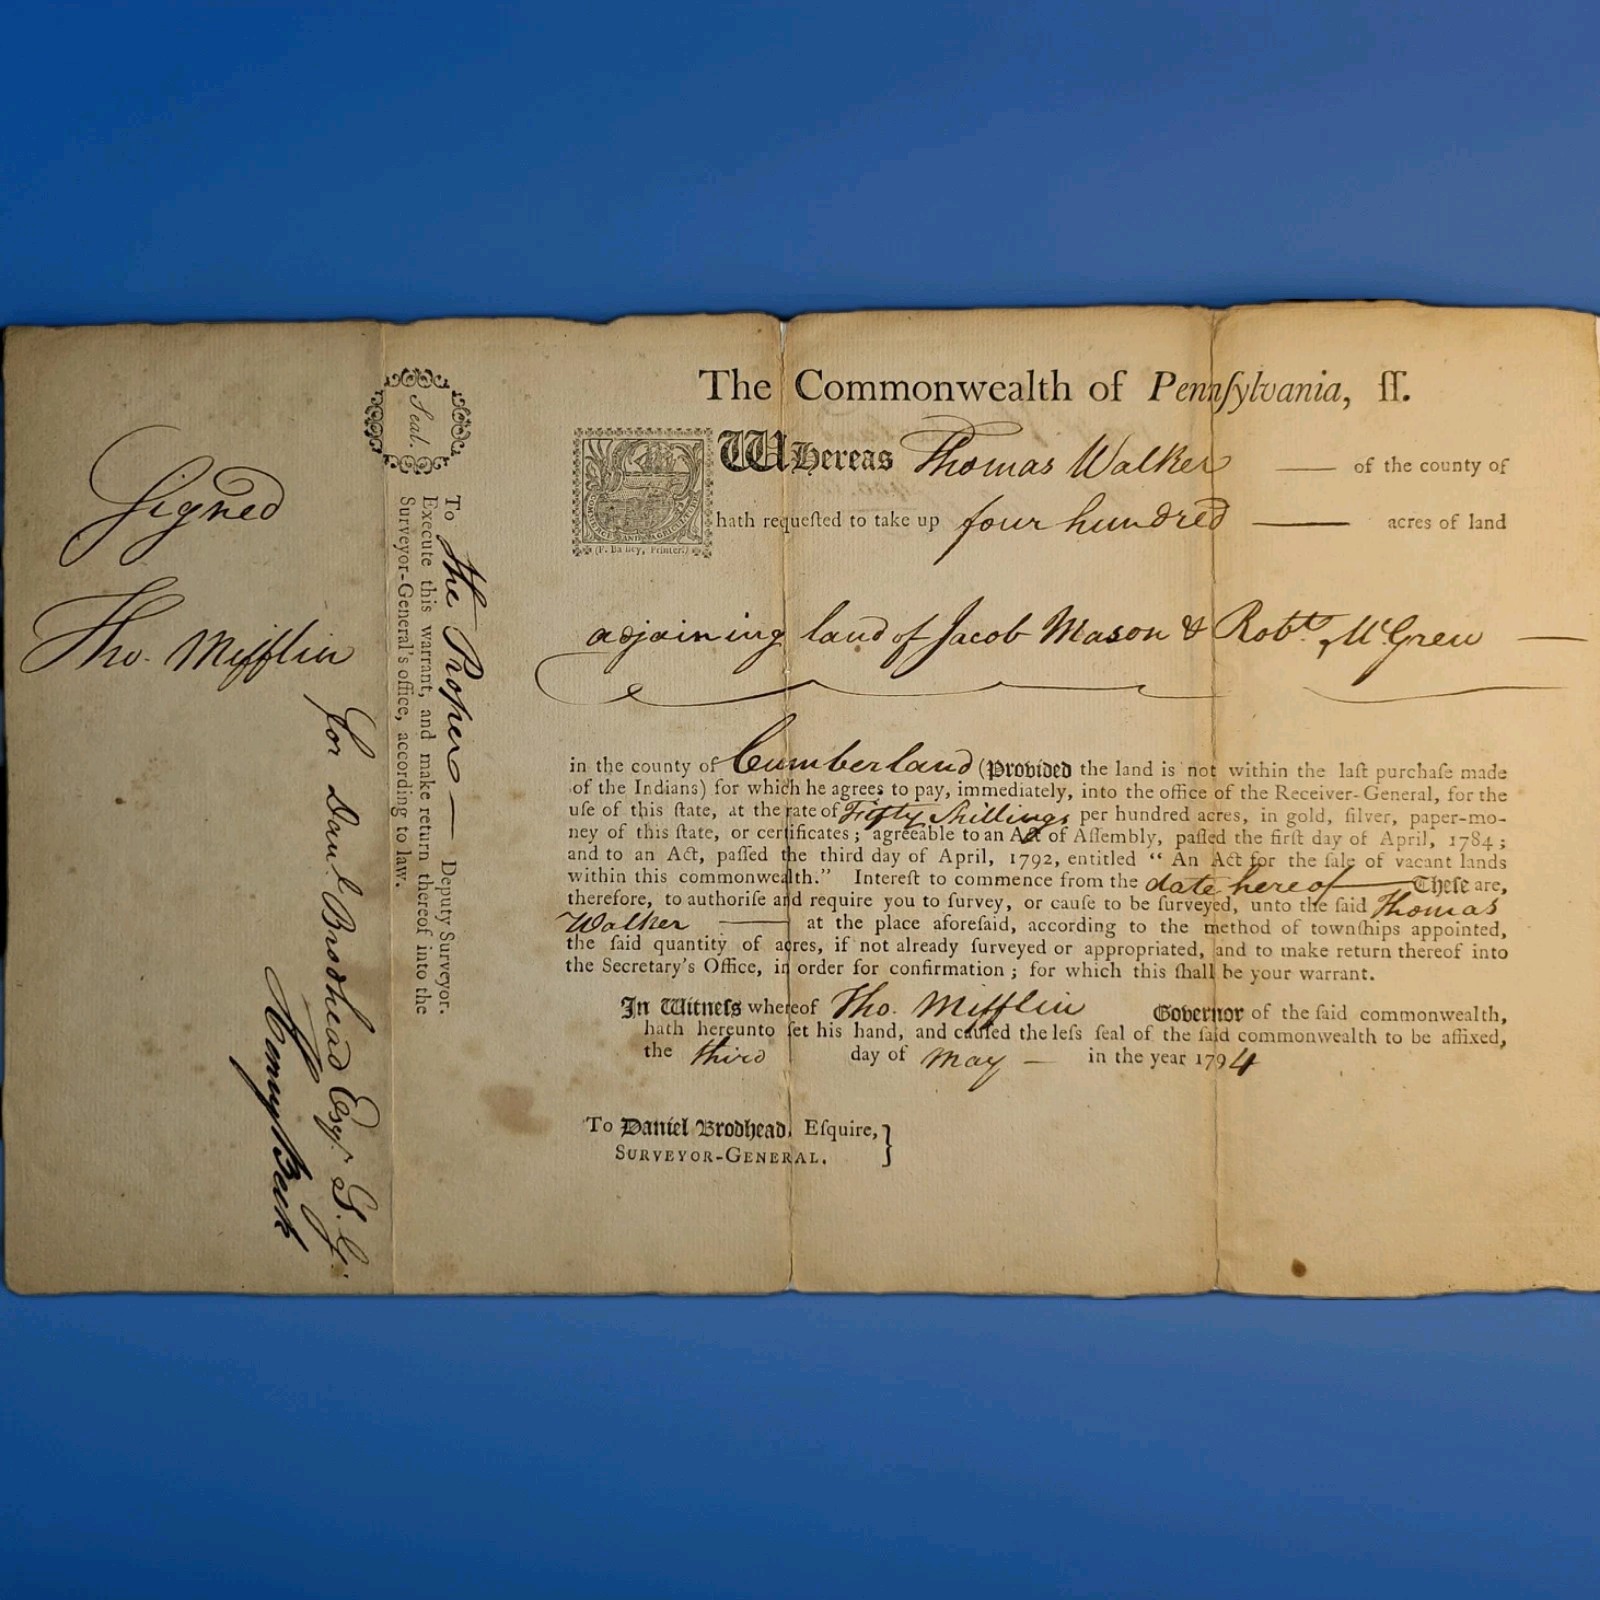 The Commonwealth of Pennſylvania, ſſ.
Whereas Thomas Walker — of the county of
hath requeſted to take up four hundred — acres of land
(F. Bailey, Printer.)
adjoining land of Jacob Mason & Robt. McGrew —
in the county of Cumberland (Provided the land is not within the laſt purchaſe made
of the Indians) for which he agrees to pay, immediately, into the office of the Receiver-General, for the
uſe of this ſtate, at the rate of Fifty Shillings per hundred acres, in gold, ſilver, paper-mo-
ney of this ſtate, or certificates; agreeable to an Act of Aſſembly, paſſed the firſt day of April, 1784;
and to an Act, paſſed the third day of April, 1792, entitled “ An Act for the ſale of vacant lands
within this commonwealth.” Intereſt to commence from the date hereof — Theſe are,
therefore, to authoriſe and require you to ſurvey, or cauſe to be ſurveyed, unto the ſaid Thomas
Walker — at the place aforeſaid, according to the method of townſhips appointed,
the ſaid quantity of acres, if not already ſurveyed or appropriated, and to make return thereof into
the Secretary's Office, in order for confirmation; for which this ſhall be your warrant.
In Witneſs whereof Tho. Mifflin Governor of the ſaid commonwealth,
hath hereunto ſet his hand, and cauſed the leſs ſeal of the ſaid commonwealth to be affixed,
the third day of May — in the year 1794
To Daniel Brodhead, Eſquire, }
SURVEYOR-GENERAL.
Seal.
To the Proper — Deputy Surveyor.
Execute this warrant, and make return thereof into the
Surveyor-General's office, according to law.
Signed
Tho. Mifflin
for Danl. Brodhead Esqr. S. G.